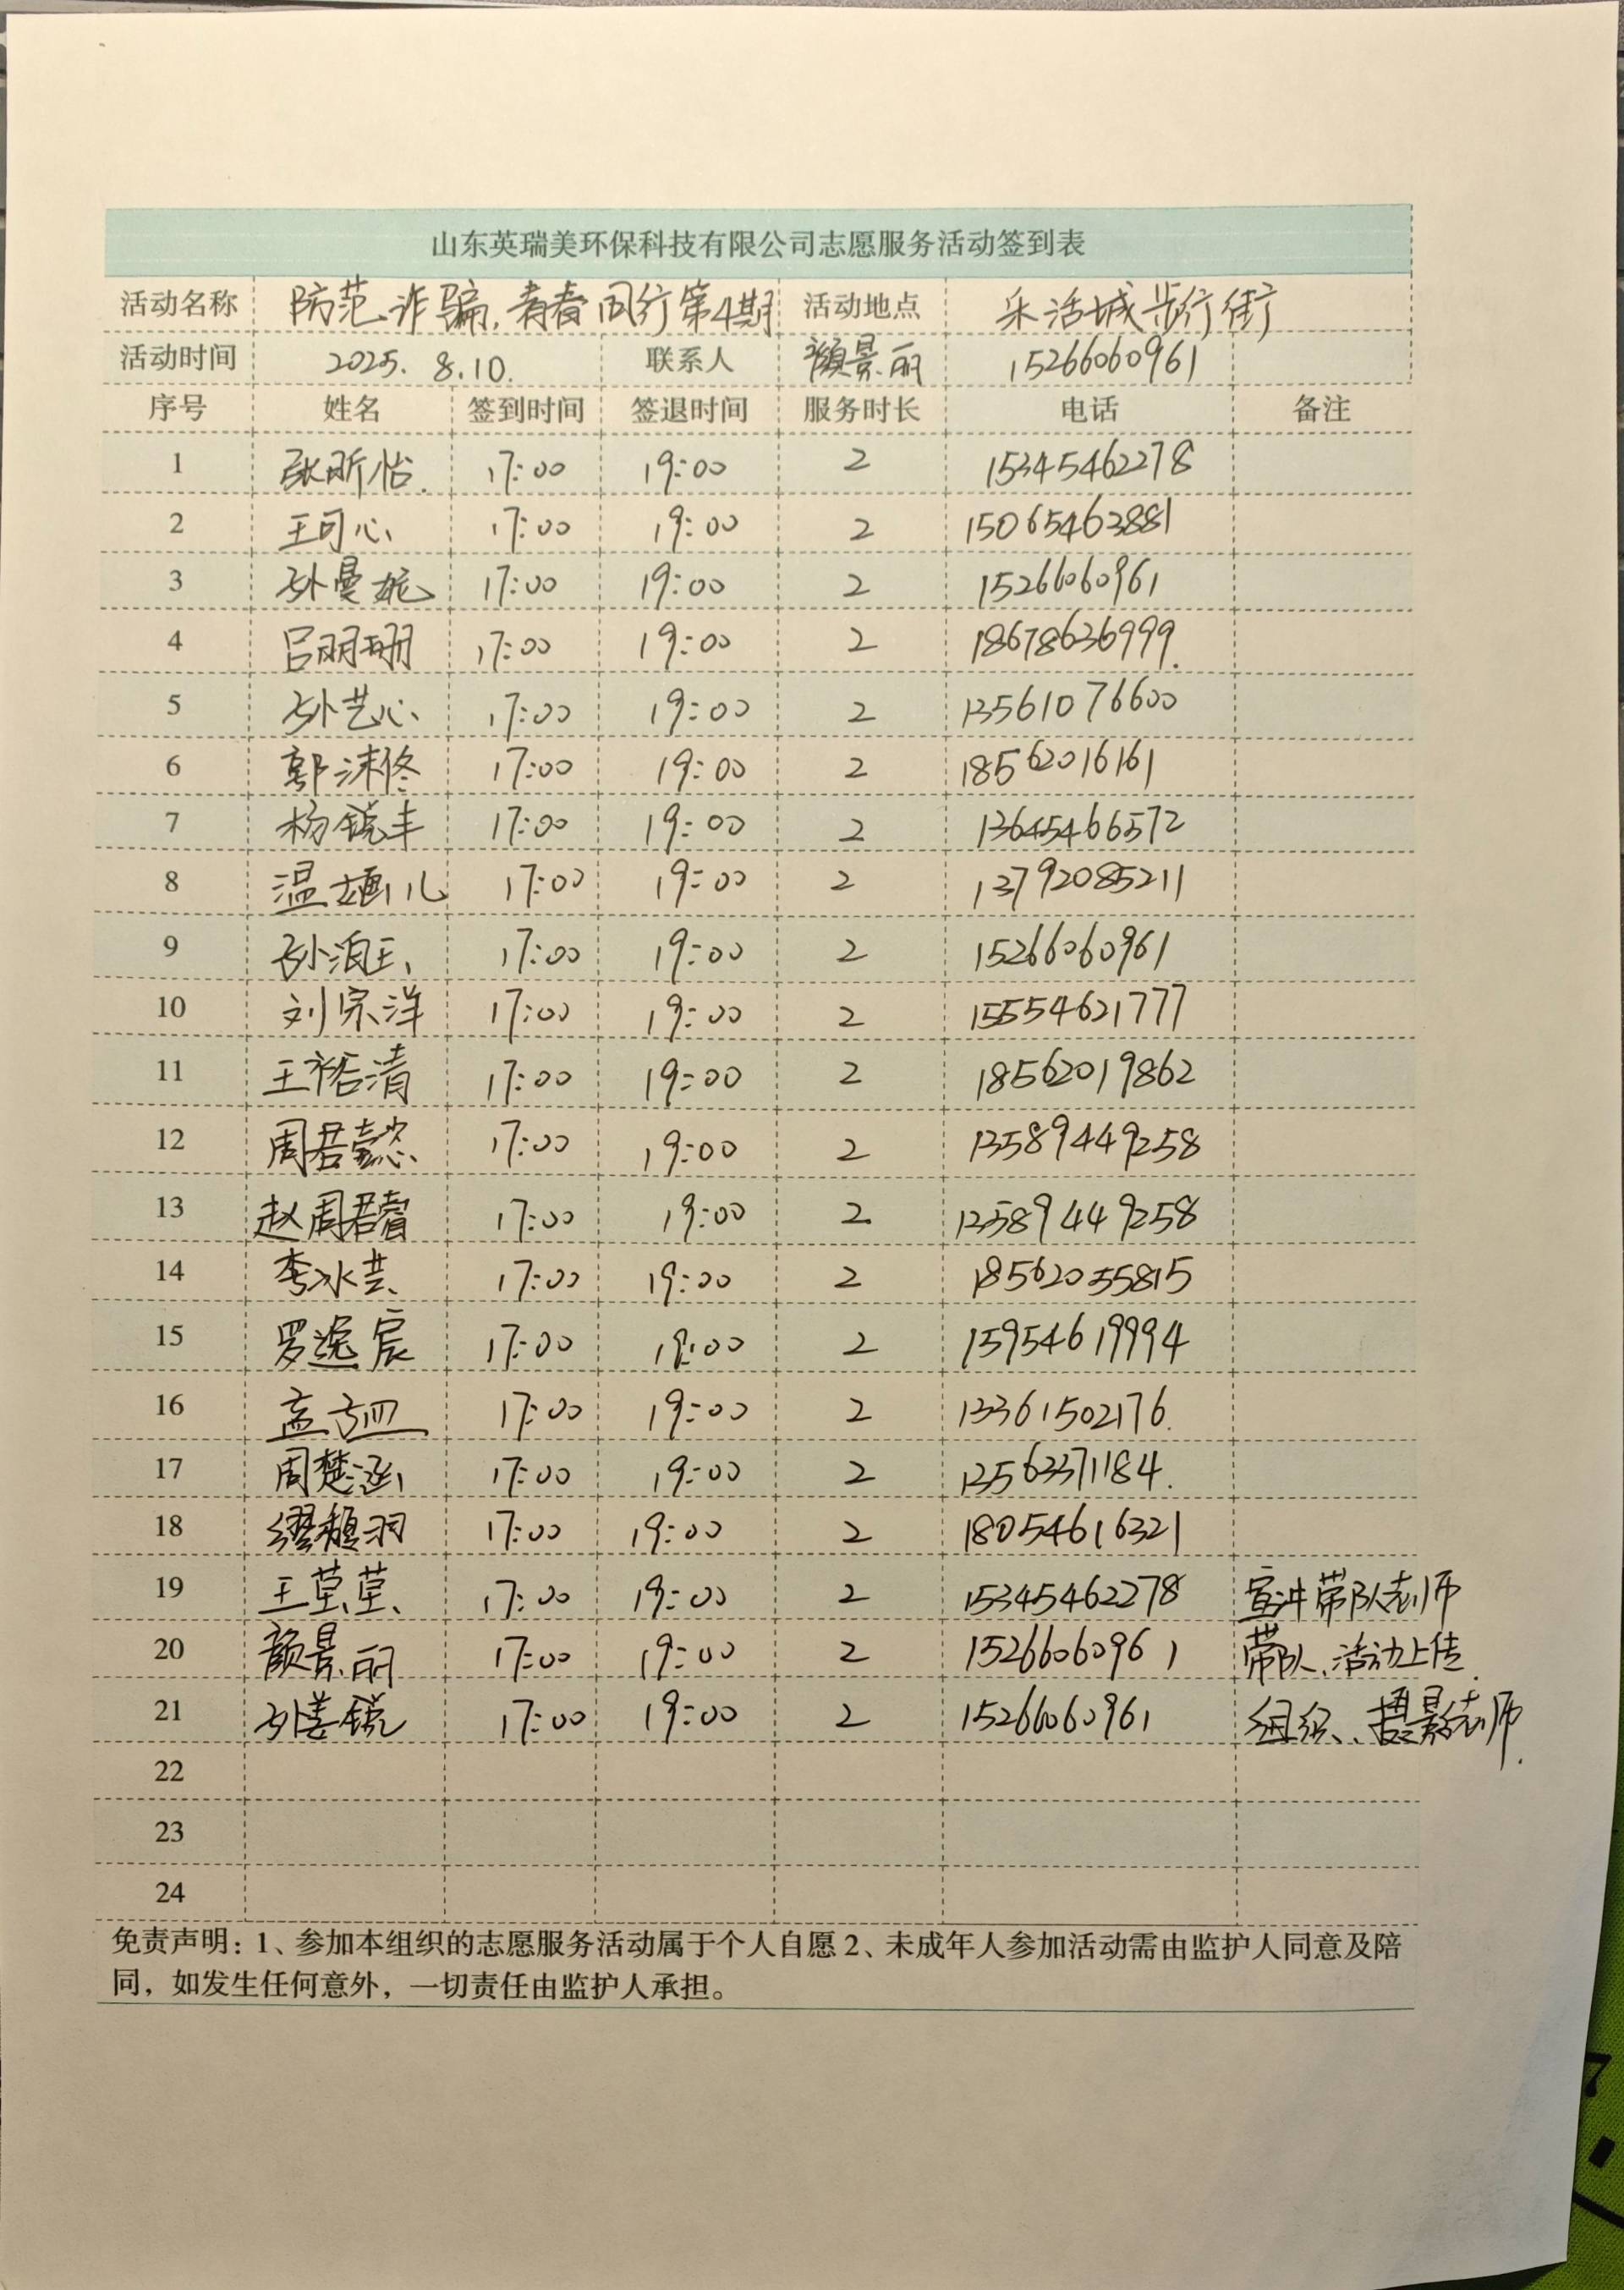 山东英瑞美环保科技有限公司志愿服务活动签到表
活动名称 防范诈骗,青春同行第4期 活动地点 乐活城步行街
活动时间 2025.8.10. 联系人 颜景丽 15266060961
序号 姓名 签到时间 签退时间 服务时长 电话 备注
1 张昕怡 17:00 19:00 2 15345462278
2 王可心 17:00 19:00 2 15065463881
3 孙曼妮 17:00 19:00 2 15266060961
4 吕玥珊 17:00 19:00 2 18678636999.
5 孙艺心 17:00 19:00 2 13561076600
6 郭沫佟 17:00 19:00 2 18562016161
7 杨锐丰 17:00 19:00 2 13645466572
8 温婳儿 17:00 19:00 2 13792085211
9 孙 17:00 19:00 2 15266060961
10 刘宗洋 17:00 19:00 2 15554621777
11 王裕清 17:00 19:00 2 18562019862
12 周君懿 17:00 19:00 2 13589449258
13 赵周君睿 17:00 19:00 2 13589449258
14 李冰芸 17:00 19:00 2 18562055815
15 罗逸宸 17:00 19:00 2 15954619994
16 孟 17:00 19:00 2 13361502176.
17 周楚涵 17:00 19:00 2 13563371184.
18 缪穆羽 17:00 19:00 2 18054616321
19 王莹莹 17:00 19:00 2 15345462278 宣讲带队老师
20 颜景丽 17:00 19:00 2 15266060961 带队、活动上传
21 孙善锐 17:00 19:00 2 15266060961 组织、摄影老师.
22
23
24
免责声明：1、参加本组织的志愿服务活动属于个人自愿2、未成年人参加活动需由监护人同意及陪
同，如发生任何意外，一切责任由监护人承担。
7